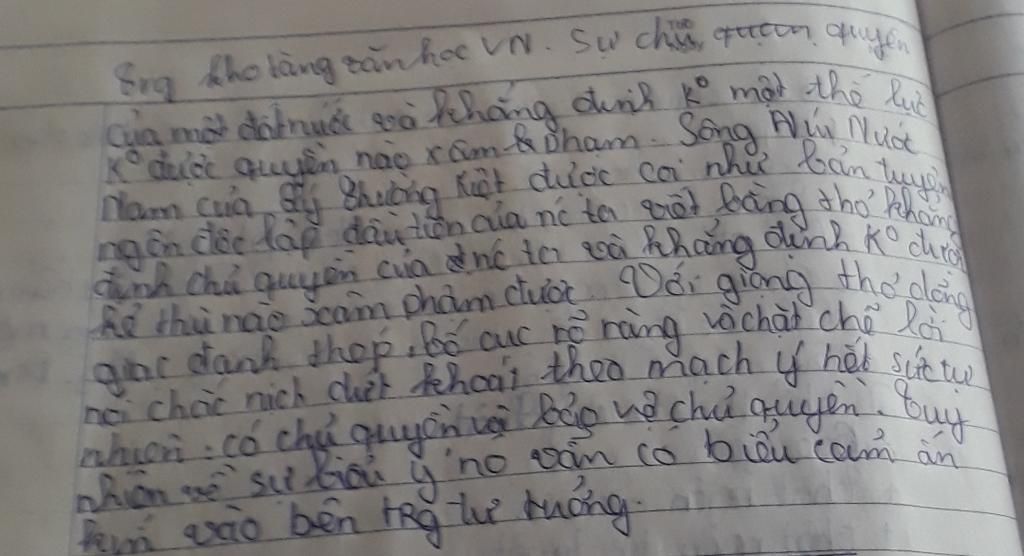 trg kho tàng văn học VN. Sự chủ quyền
của một đất nước và khẳng định Kº một thế lực
Kº được quyền nào xâm phạm. Sông Núi Nước
Nam của Lý Thường Kiệt được coi như bản tuyên
ngôn độc lập đầu tiên của nc ta viết bằng thơ khẳng
định chủ quyền của đnc ta và khẳng định Kº được
kẻ thù nào xâm phàm được. Với giọng thơ dõng
giạc đanh thép, bố cục rõ ràng và chặt chẽ lời
nói chắc nịch dứt khoát theo mạch ý hết sức tự
nhiên: có chủ quyền và bảo vệ chủ quyền. Tuy
nhiên về sự biểu ý nó vẫn có biểu cảm ẩn
kín vào bên trg tư tưởng.